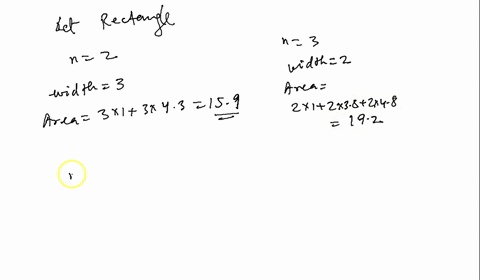 Let Rectangle
n = 2
width = 3
Area = 3×1 + 3×4.3 = 15.9
n = 3
width = 2
Area =
2×1 + 2×3.8 + 2×4.8
= 19.2